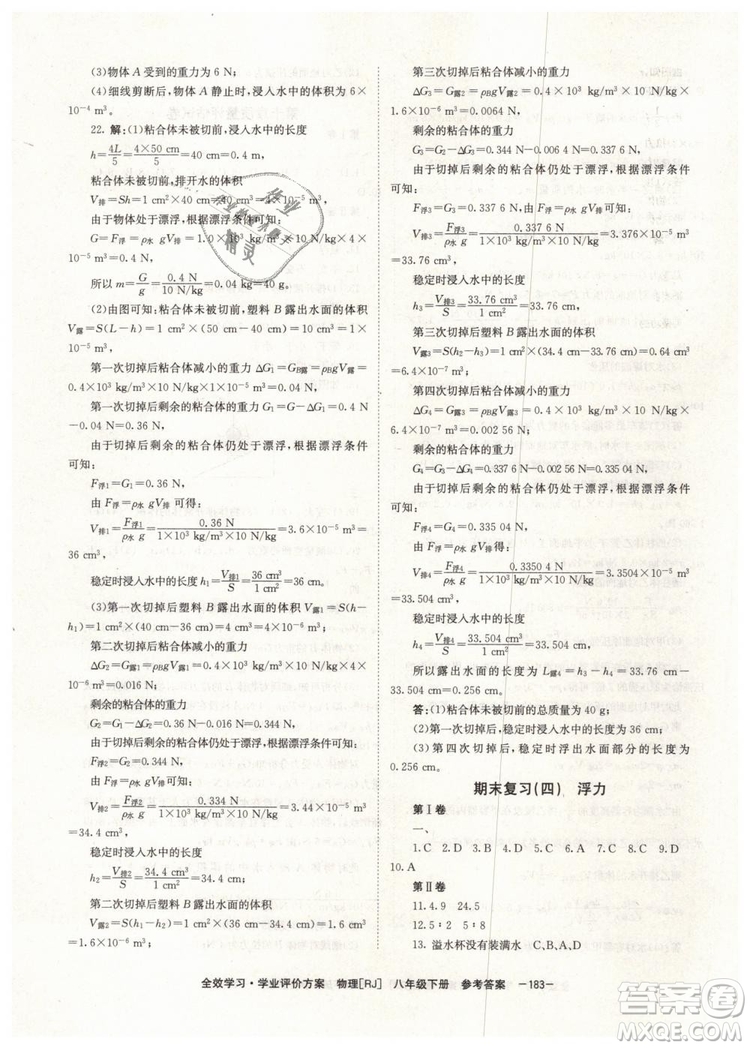 (3)物体 A 受到的重力为 6 N;
(4)细线剪断后,物体静止时,浸入水中的体积为 6×
10⁻⁴ m³.
22. 解:(1)粘合体未被切前,浸入水中的长度
h=4L/5=4×50 cm/5=40 cm=0.4 m,
粘合体未被切前,排开水的体积
V排=Sh=1 cm²×40 cm=40 cm³=4×10⁻⁵ m³,
由于物体漂浮,根据漂浮条件可知:
G=F浮=ρ水 gV排=1.0×10³ kg/m³×10 N/kg×4×
10⁻⁵ m³=0.4 N,
所以 m=G/g=0.4 N/10 N/kg=0.04 kg=40 g.
(2)由图可知:粘合体未被切前,塑料 B 露出水面的体积
V露=S(L-h)=1 cm²×(50 cm-40 cm)=10 cm³=
1×10⁻⁵ m³,
第一次切掉后粘合体减小的重力 ΔG₁=G露=ρgV露=
0.4×10³ kg/m³×10 N/kg×1×10⁻⁵ m³=0.04 N,
第一次切掉后剩余的粘合体的重力 G₁=G-ΔG₁=0.4 N
-0.04 N=0.36 N,
由于切掉后剩余的粘合体仍处于漂浮,根据漂浮条件
可知:
F浮1=G₁=0.36 N,
由 F浮=ρ水 gV排 可得:
V排1=F浮1/ρ水g=0.36 N/1×10³ kg/m³×10 N/kg=3.6×10⁻⁵ m³=
36 cm³,
稳定时浸入水中的长度 h₁=V排1/S=36 cm³/1 cm²=36 cm.
(3)第一次切掉后塑料 B 露出水面的体积 V露1=S(h-
h₁)=1 cm²×(40 cm-36 cm)=4 cm³=4×10⁻⁶ m³,
第二次切掉后粘合体减小的重力
ΔG₂=G露2=ρgV露2=0.4×10³ kg/m³×10 N/kg×4×
10⁻⁶ m³=0.016 N,
剩余的粘合体的重力
G₂=G₁-ΔG₂=0.36 N-0.016 N=0.344 N,
由于切掉后剩余的粘合体仍处于漂浮,根据漂浮条件
可知:F浮2=G₂=0.344 N,
由 F浮=ρ水 gV排 可得:
V排2=F浮2/ρ水g=0.334 N/1×10³ kg/m³×10 N/kg=3.44×10⁻⁵ m³
=34.4 cm³,
稳定时浸入水中的长度
h₂=V排2/S=34.4 cm³/1 cm²=34.4 cm,
第二次切掉后塑料 B 露出水面的体积
V露2=S(h₁-h₂)=1 cm²×(36 cm-34.4 cm)=1.6 cm³
=1.6×10⁻⁶ m³,
第三次切掉后粘合体减小的重力
ΔG₃=G露3=ρgV露2=0.4×10³ kg/m³×10 N/kg
×1.6×10⁻⁶ m³=0.0064 N,
剩余的粘合体的重力
G₃=G₂-ΔG₃=0.344 N-0.006 4 N=0.337 6 N,
由于切掉后剩余的粘合体仍处于漂浮,根据漂浮条件
可知:
F浮3=G₃=0.337 6 N,
由 F浮=ρ水 gV排 可得:
V排3=F浮3/ρ水g=0.337 6 N/1×10³ kg/m³×10 N/kg=3.376×10⁻⁵ m³
=33.76 cm³,
稳定时浸入水中的长度
h₃=V排3/S=33.76 cm³/1 cm²=33.76 cm,
第三次切掉后塑料 B 露出水面的体积
V露3=S(h₂-h₃)=1 cm²×(34.4 cm-33.76 cm)=0.64 cm³=
6.4×10⁻⁷ m³,
第四次切掉后粘合体减小的重力
ΔG₄=G露3=ρgV露3=0.4×10³ kg/m³×10 N/kg×
6.4×10⁻⁷ m³=0.002 56 N,
剩余的粘合体的重力
G₄=G₃-ΔG₄=0.337 6 N-0.002 56 N=0.335 04 N,
由于切掉后剩余的粘合体仍处于漂浮,根据漂浮条件
可知:
F浮4=G₄=0.335 04 N,
由 F浮=ρ水 gV排 可得:
V排4=F浮4/ρ水g=0.3350 4 N/1×10³ kg/m³×10 N/kg=3.3504×10⁻⁵ m³
=33.504 cm³,
稳定时浸入水中的长度
h₄=V排4/S=33.504 cm³/1 cm²=33.504 cm,
所以露出水面的长度 L露4=h₃-h₄=33.76 cm-
33.504 cm=0.256 cm.
答:(1)粘合体未被切前的总质量为 40 g;
(2)第一次切掉后,稳定时浸入水中的长度为 36 cm;
(3)第四次切掉后,稳定时浮出水面部分的长度为
0.256 cm.
期末复习(四) 浮力
第Ⅰ卷
一、
1.C 2.D 3.D 4.D 5.C 6.A 7.C 8.D 9.D
10.A
第Ⅱ卷
11.4.9 24.5
12.5∶2 5∶8
13.溢水杯没有装满水 C、B、D、A
全效学习·学业评价方案 物理[RJ] 八年级下册 参考答案 —183—
作业
精灵
MXQE.COM